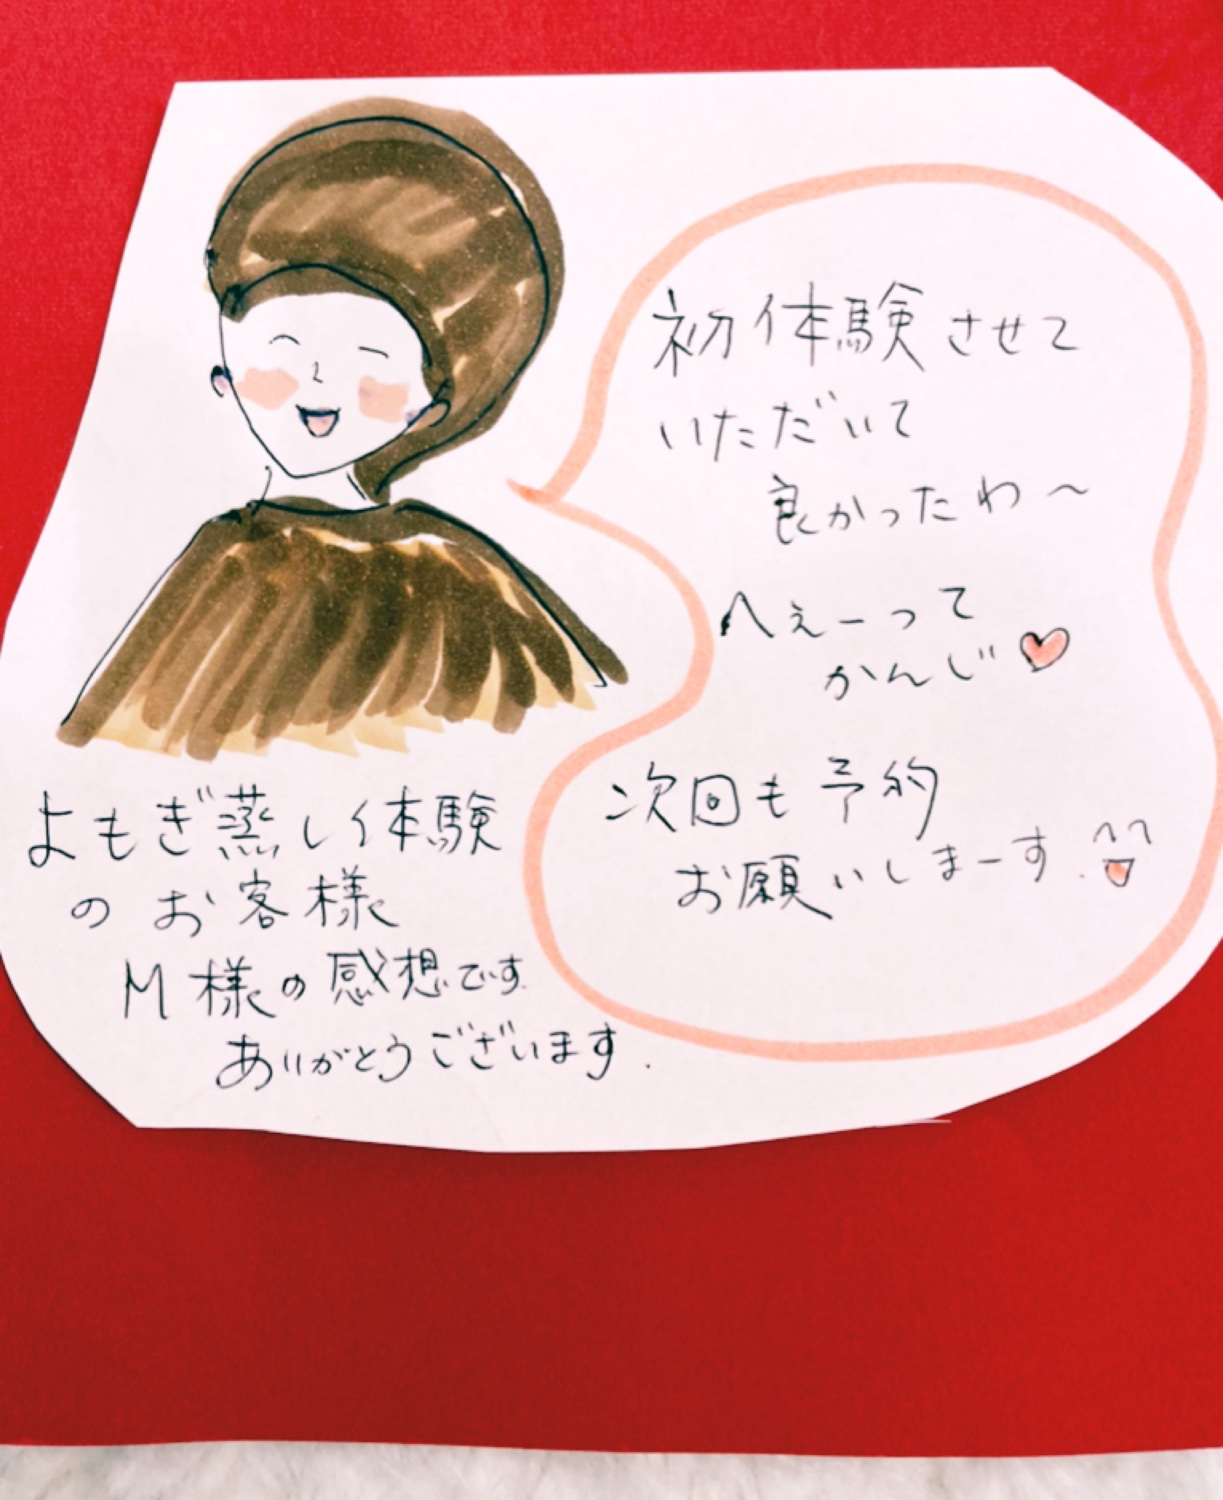 初体験させて
いただいて
良かったわ～
へぇーって
かんじ♡
次回も予約
お願いしまーす.
よもぎ蒸し体験
のお客様
M様の感想です
ありがとうございます.